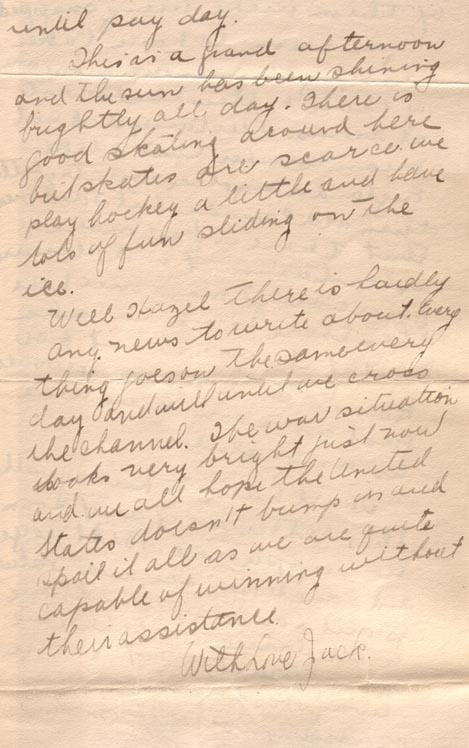 until pay day.
This is a grand afternoon
and the sun has been shining
brightly all day. There is
good skating around here
but skates are scarce. we
play hockey a little and have
lots of fun sliding on the
ice.
Well Hazel there is hardly
any news to write about. Every
thing goes on the same every
day and will until we cross
the channel. The war situation
looks very bright just now
and we all hope the United
States doesn't bump in and
spoil it all as we are quite
capable of winning without
their assistance.
With Love Jack.